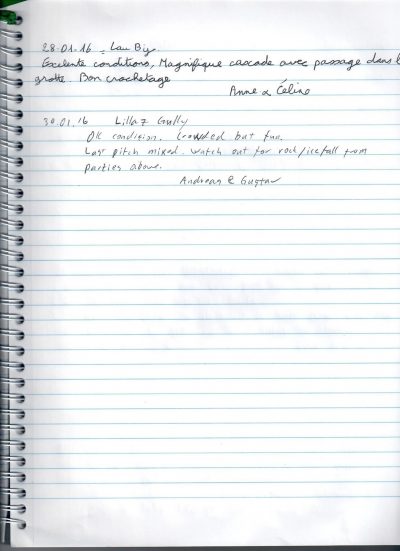 28.01.16 - Lau Bij
Excelente conditions, Magnifique cascade avec passage dans l
grotte. Bon crochetage
Anne & Céline
30.01.16 Lillaz Gully
OK condision. Crowded but fun.
Last pitch mixed. Watch out for rock/icefall from
parties above.
Andreas & Gustav